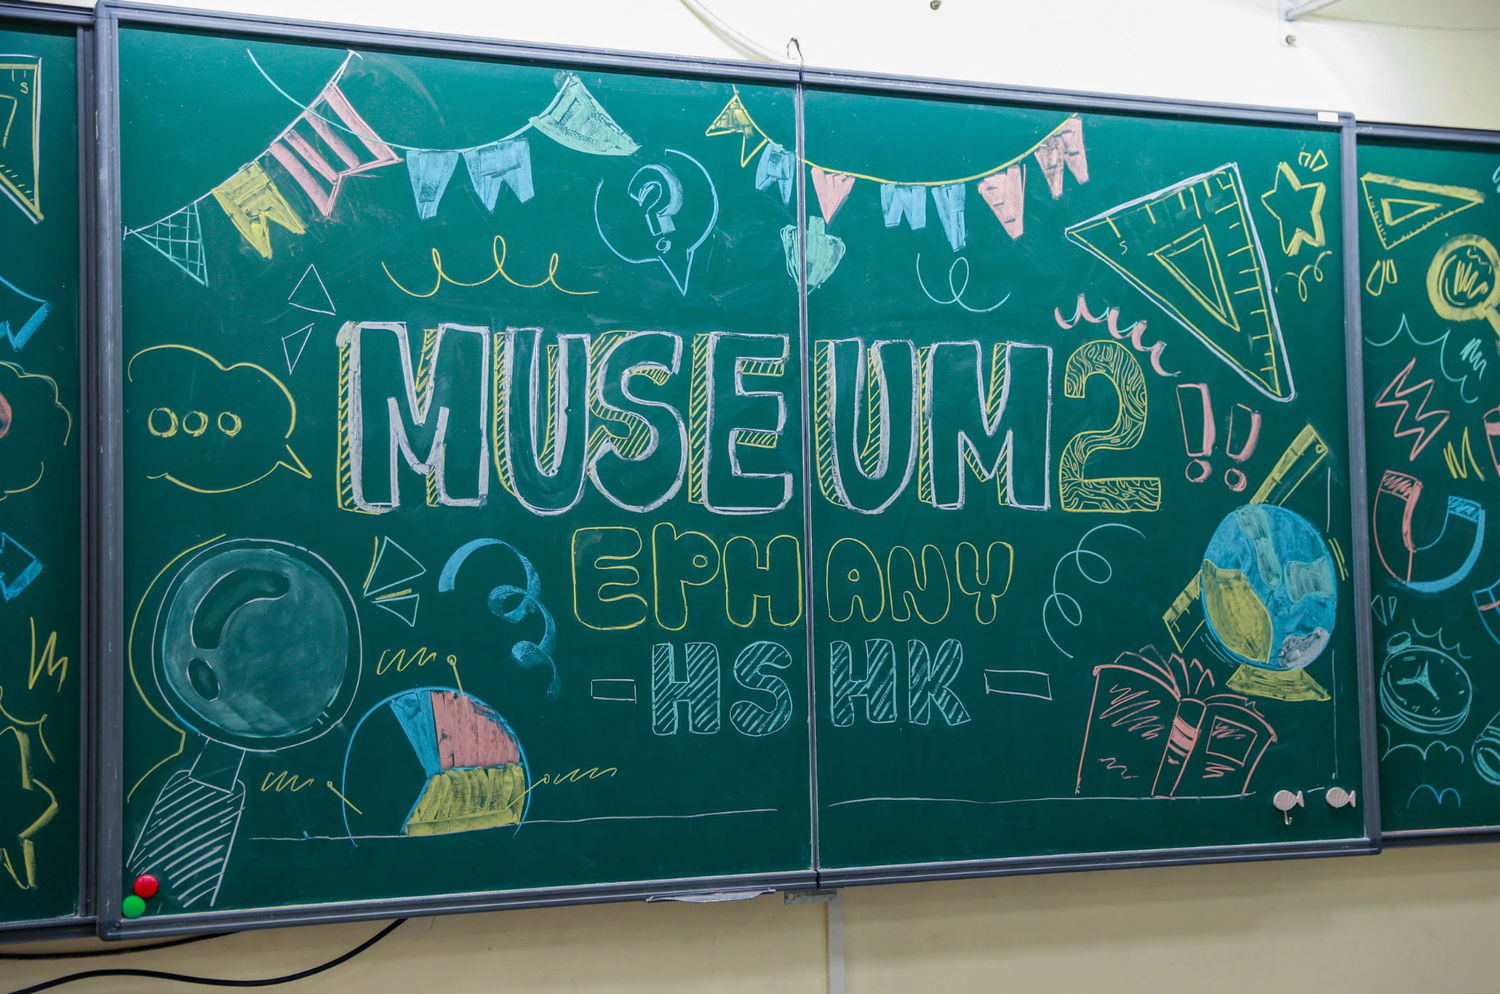 MUSEUM 2
EPHANY
-HSHK-
?
!!
S
S